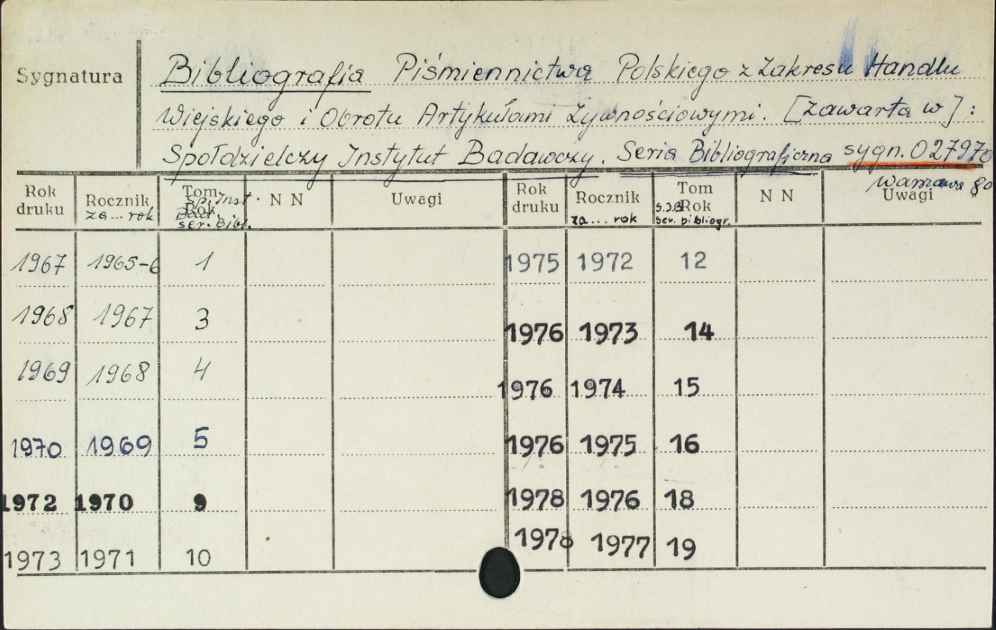 Sygnatura
Bibliografia Piśmiennictwa Polskiego z Zakresu Handlu
Wiejskiego i Obrotu Artykułami Żywnościowymi. [zawarta w]:
Spółdzielczy Instytut Badawczy. Seria Bibliograficzna sygn. 027970
Warszawa 80
Rok druku Rocznik za... rok Tom Rok Sp. Inst. Bad. ser. bibl. N N Uwagi Rok druku Rocznik za... rok Tom Rok S.I.B. ser. bibliogr. N N Uwagi
1967 1965-6 1 1975 1972 12
1968 1967 3 1976 1973 14
1969 1968 4 1976 1974 15
1970 1969 5 1976 1975 16
1972 1970 9 1978 1976 18
1973 1971 10 1978 1977 19